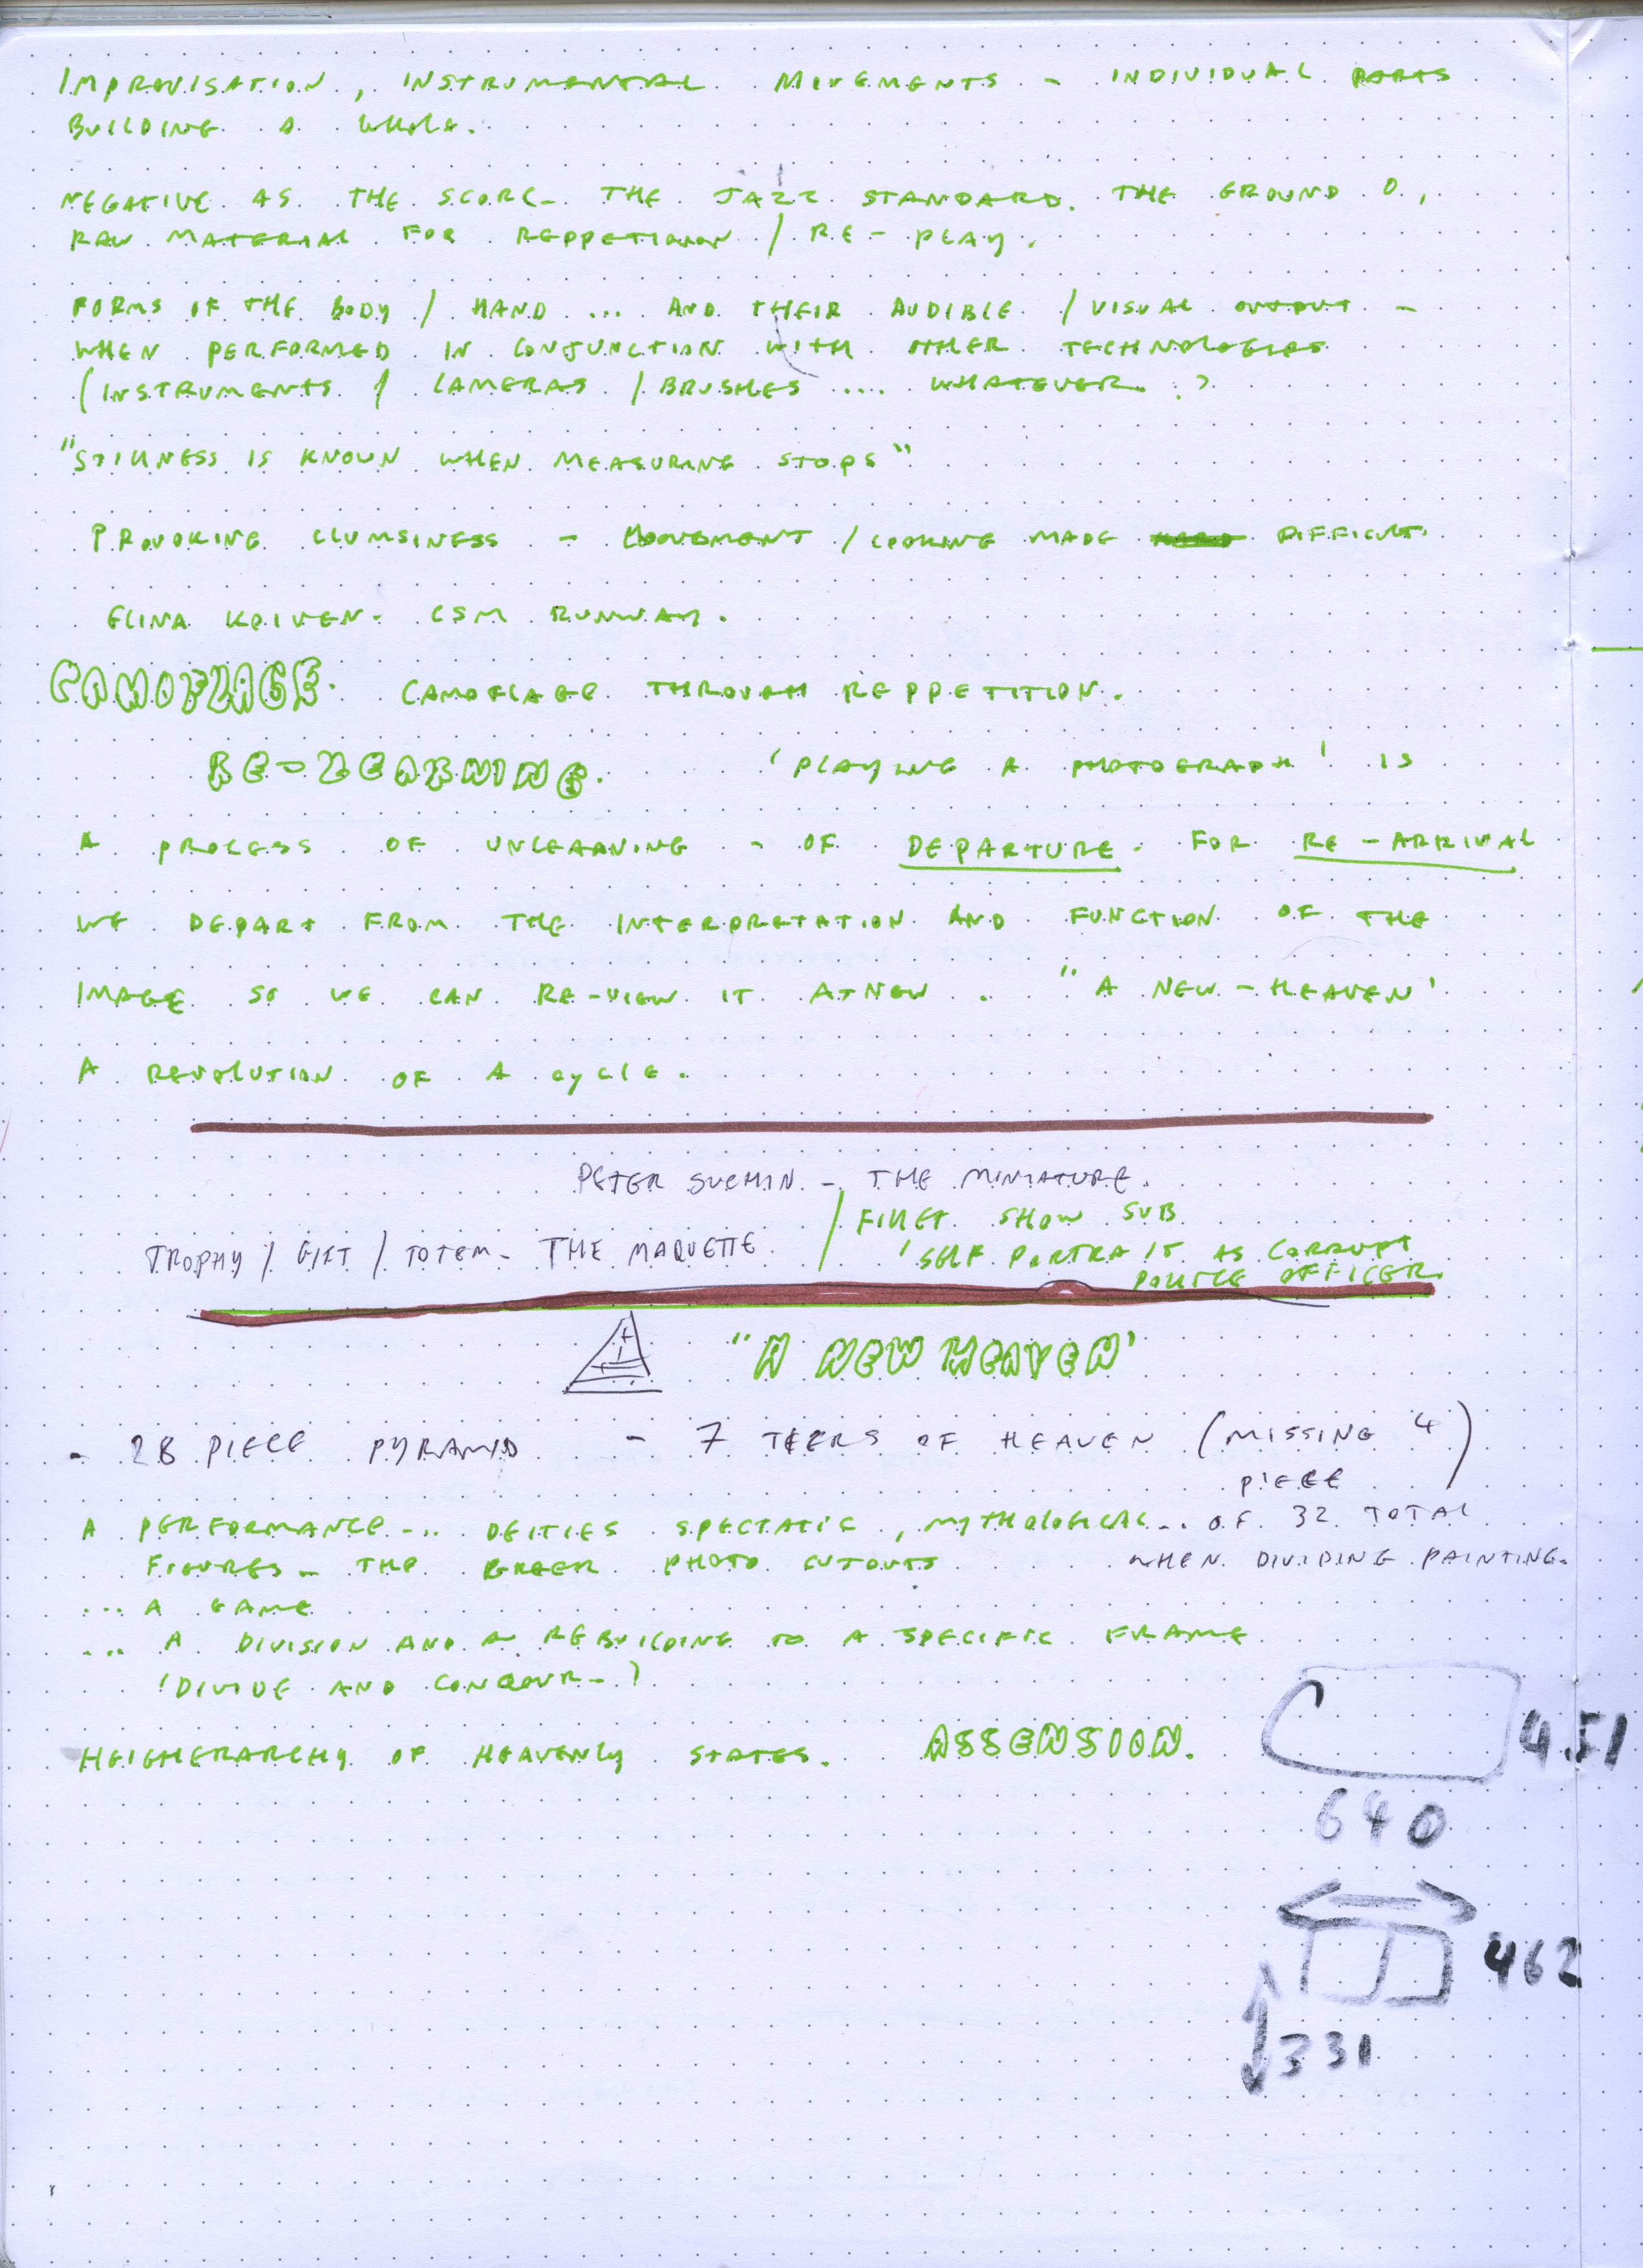 IMPROVISATION, INSTRUMENTAL MOVEMENTS - INDIVIDUAL PARTS
BUILDING A WHOLE.
NEGATIVE AS THE SCORE - THE JAZZ STANDARD. THE GROUND 0,
RAW MATERIAL FOR REPPETITION / RE-PLAY.
FORMS OF THE BODY / HAND ... AND THEIR AUDIBLE / VISUAL OUTPUT -
WHEN PERFORMED IN CONJUNCTION WITH OTHER TECHNOLOGIES
(INSTRUMENTS / CAMERAS / BRUSHES .... WHATEVER.)
"STILLNESS IS KNOWN WHEN MEASURING STOPS"
PROVOKING CLUMSINESS - MOVEMENT / LOOKING MADE DIFFICULT.
ELINA - CSM RUNWAY.
CAMOFLAGE. CAMOFLAGE THROUGH REPPETITION.
RE-LEARNING. 'PLAYING A PHOTOGRAPH' IS
A PROCESS OF UNLEARNING - OF DEPARTURE. FOR RE-ARRIVAL
WE DEPART FROM THE INTERPRETATION AND FUNCTION OF THE
IMAGE SO WE CAN RE-VIEW IT ATNEW. "A NEW-HEAVEN'
A REVOLUTION OF A CYCLE.
PETER SUCHIN - THE MINIATURE.
TROPHY / GIFT / TOTEM - THE MAQUETTE. / FILLET SHOW SUB
'SELF PORTRAIT AS CORRUPT
POLICE OFFICER.
"A NEW HEAVEN'
- 28 PIECE PYRAMID - 7 TEERS OF HEAVEN (MISSING 4
PIECE)
A PERFORMANCE ... DEITIES SPECTATIC, MYTHOLOGICAL... OF 32 TOTAL
FIGURES - THE GREEK PHOTO CUTOUTS WHEN DIVIDING PAINTING.
... A GAME
... A DIVISION AND A REBUILDING TO A SPECIFIC FRAME
(DIVIDE AND CONQOUR-)
HEIGHERARCHY OF HEAVENLY STATES. ASSENSION.
4.51
640
462
331